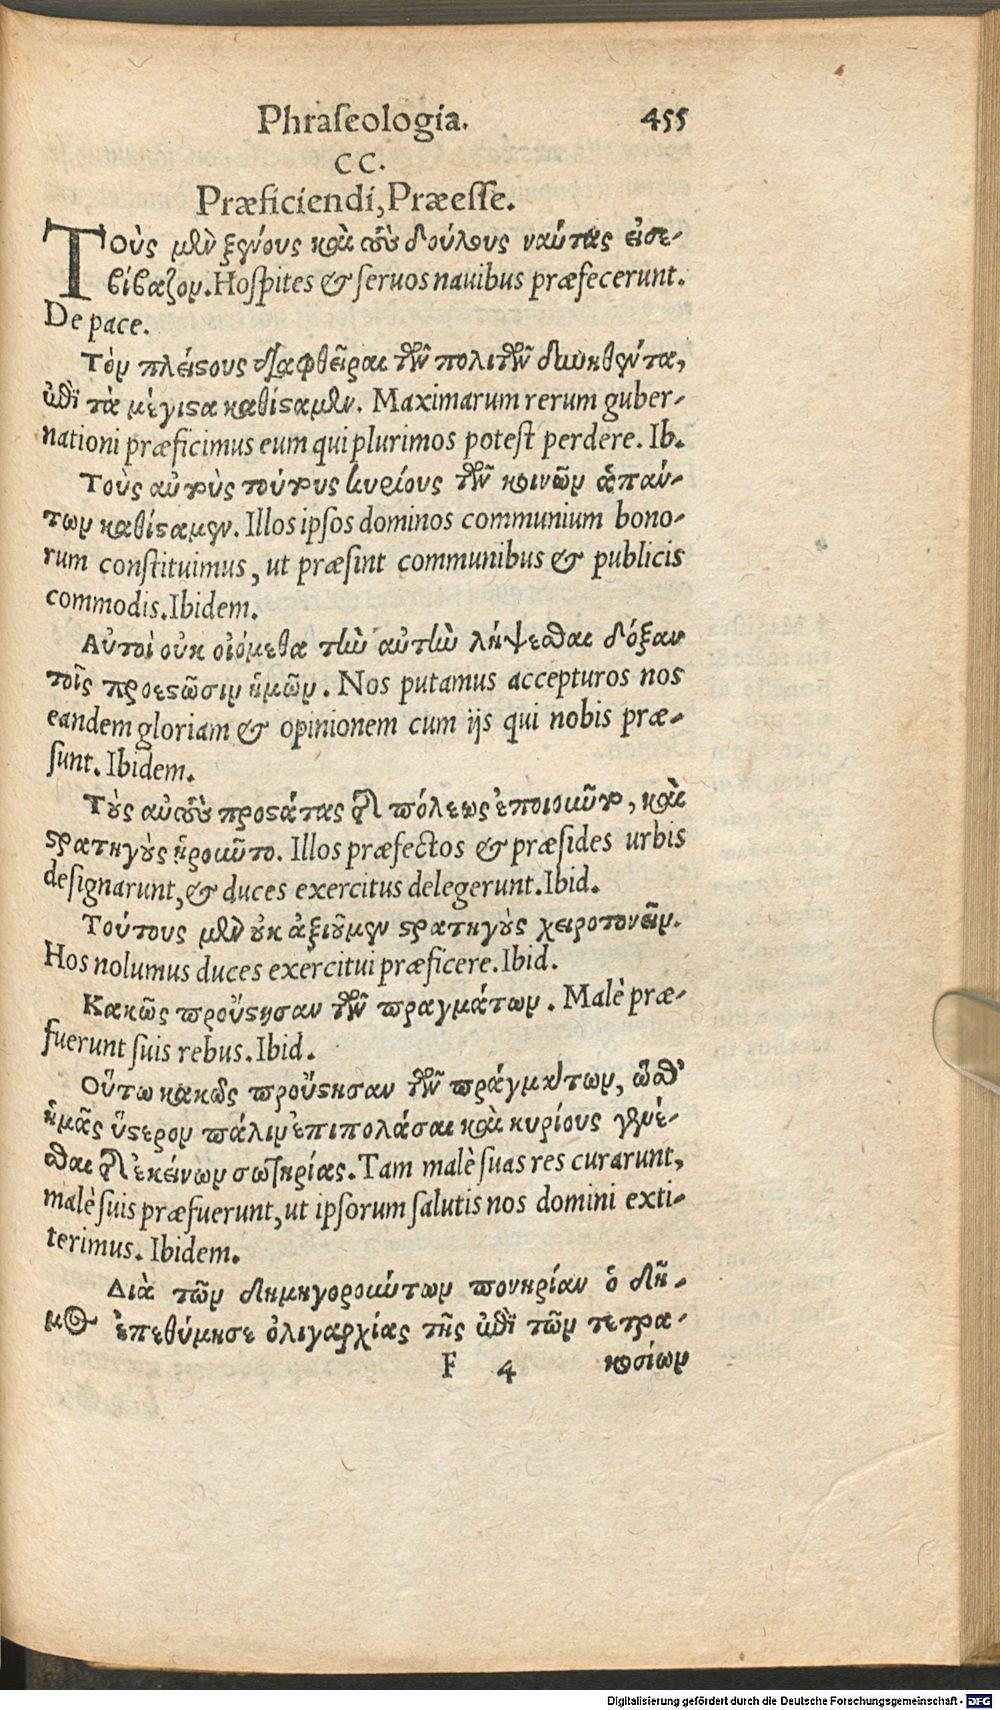 Phraseologia. 455
CC.
Præficiendi, Præesse.
Τοὺς μὲν ξένους καὶ τοὺς δούλους ναύτας εἰσε-
βίβαζον. Hospites & seruos nauibus præfecerunt.
De pace.
Τὸν πλείστους διαφθεῖραι τῶν πολιτῶν δυνηθέντα,
ἐπὶ τὰ μέγιστα καθίσταμεν. Maximarum rerum guber-
nationi præficimus eum qui plurimos potest perdere. Ib.
Τοὺς αὐτοὺς τούτους κυρίους τῶν κοινῶν ἁπάν-
των καθίσταμεν. Illos ipsos dominos communium bono-
rum constituimus, ut præsint communibus & publicis
commodis. Ibidem.
Αὐτοὶ οὐκ οἰόμεθα τὴν αὐτὴν λήψεσθαι δόξαν
τοῖς προεστῶσιν ἡμῶν. Nos putamus accepturos nos
eandem gloriam & opinionem cum ijs qui nobis præ-
sunt. Ibidem.
Τοὺς αὐτοὺς προστάτας τῆς πόλεως ἐποιοῦντο, καὶ
στρατηγοὺς ᾑροῦντο. Illos præfectos & præsides urbis
designarunt, & duces exercitus delegerunt. Ibid.
Τούτους μὲν οὐκ ἀξιοῦμεν στρατηγοὺς χειροτονεῖν.
Hos nolumus duces exercitui præficere. Ibid.
Κακῶς προὔστησαν τῶν πραγμάτων. Malè præ-
fuerunt suis rebus. Ibid.
Οὕτω κακῶς προὔστησαν τῶν πραγμάτων, ὥσθ'
ἡμᾶς ὕστερον πάλιν ἐπιπολάσαι καὶ κυρίους γενέ-
σθαι τῆς ἐκείνων σωτηρίας. Tam malè suas res curarunt,
malè suis præfuerunt, ut ipsorum salutis nos domini exti-
terimus. Ibidem.
Διὰ τῶν δημηγορούντων πονηρίαν ὁ δῆ-
μος ἐπεθύμησε ὀλιγαρχίας τῆς ἐπὶ τῶν τετρα-
F 4 κοσίων
Digitalisierung gefördert durch die Deutsche Forschungsgemeinschaft - DFG